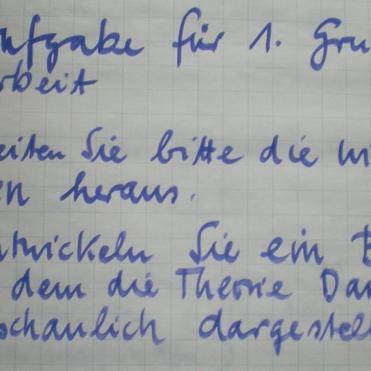 ufgabe für 1. Gru
rbeit
eiten Sie bitte die wi
en heraus.
ntwickeln Sie ein B
dem die Theorie Dar
schaulich dargestell